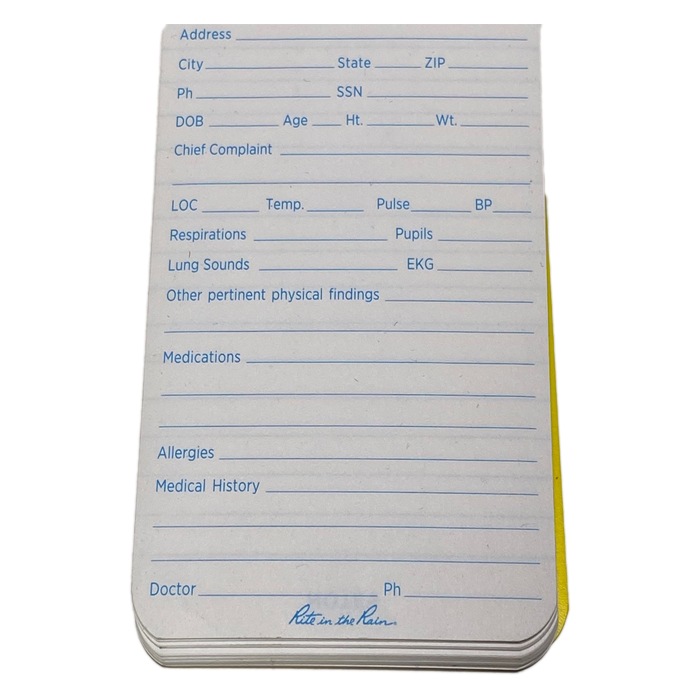 Address
City State ZIP
Ph SSN
DOB Age Ht. Wt.
Chief Complaint
LOC Temp. Pulse BP
Respirations Pupils
Lung Sounds EKG
Other pertinent physical findings
Medications
Allergies
Medical History
Doctor Ph
Rite in the Rain